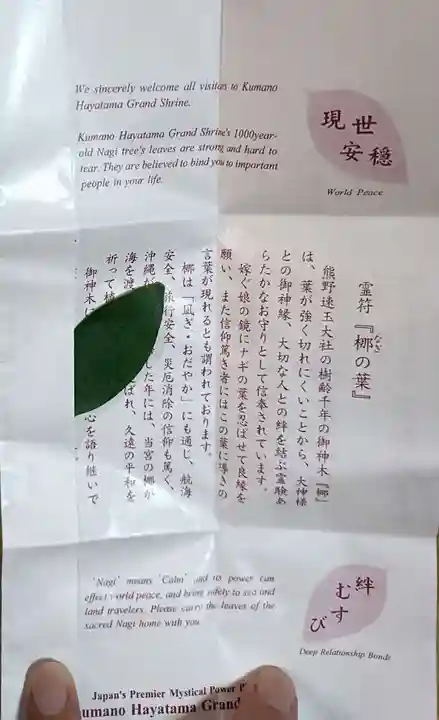 We sincerely welcome all visitors to Kumano
Hayatama Grand Shrine.
Kumano Hayatama Grand Shrine's 1000year-
old Nagi tree's leaves are strong and hard to
tear. They are believed to bind you to important
people in your life.
現世
安穏
World Peace
霊符『梛の葉』
なぎ
熊野速玉大社の樹齢千年の御神木『梛』
は、葉が強く切れにくいことから、大神様
との御神縁、大切な人との絆を結ぶ霊験あ
らたかなお守りとして信奉されています。
嫁ぐ娘の鏡にナギの葉を忍ばせて良縁を
願い、また信仰篤き者にはこの葉に導きの
言葉が現れるとも謂われております。
梛は「凪ぎ・おだやか」にも通じ、航海
安全、旅行安全、災厄消除の信仰も篤く、
沖縄が した年には、当宮の梛が
海を渡 ばれ、久遠の平和を
祈って植
御神木に 心を語り継いで
'Nagi' means 'Calm' and its power can
effect world peace, and bring safety to sea and
land travelers. Please carry the leaves of the
sacred Nagi home with you
絆
むすび
Deep Relationship Bonds
Japan's Premier Mystical Power
Kumano Hayatama Grand